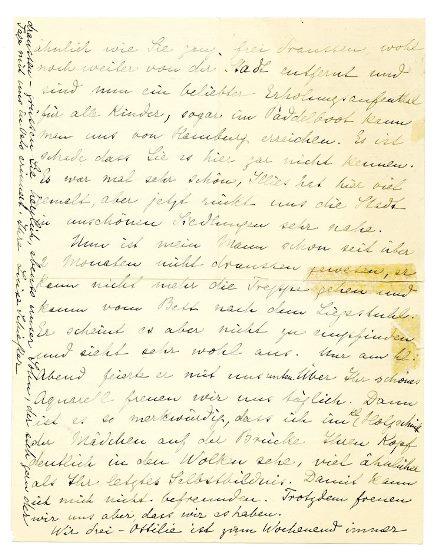 ähnlich wie Sie ganz frei draussen, wohl
noch weiter von der Stadt entfernt und
sind nun ein beliebter Erholungsaufenthalt
für alle Kinder, sogar im Paddelboot kann
man uns von Hamburg erreichen. Es ist
schade dass Sie es hier gar nicht kennen.
Es war mal sehr schön, Illies hat hier viel
gemalt, aber jetzt rückt uns die Stadt
in unschönen Siedlungen sehr nahe.
Nun ist mein Mann schon seit über
2 Monaten nicht draussen gewesen, er
kann nicht mehr die Treppe gehen und
kaum vom Bett nach dem Liegestuhl.
Er scheint es aber nicht zu empfinden
und sieht sehr wohl aus. Nur am hl.
Abend feierte er mit uns unten. Über Ihr schönes
Aquarell freuen wir uns täglich. Dann
ist es so merkwürdig, dass ich im Holzschnitt
der Mädchen auf der Brücke Ihren Kopf
deutlich in den Wolken sehe, viel ähnlicher
als Ihr letztes Selbstbildnis. Damit kann
ich mich nicht befreunden. Trotzdem freuen
wir uns aber dass wir es haben.
Wir drei - Ottilie ist zum Wochenend immer
draussen - grüssen Sie herzlich, ebenso unser Sohn, der sich gern der
Tage mit uns erinnert. Ihre Luise Schiefler